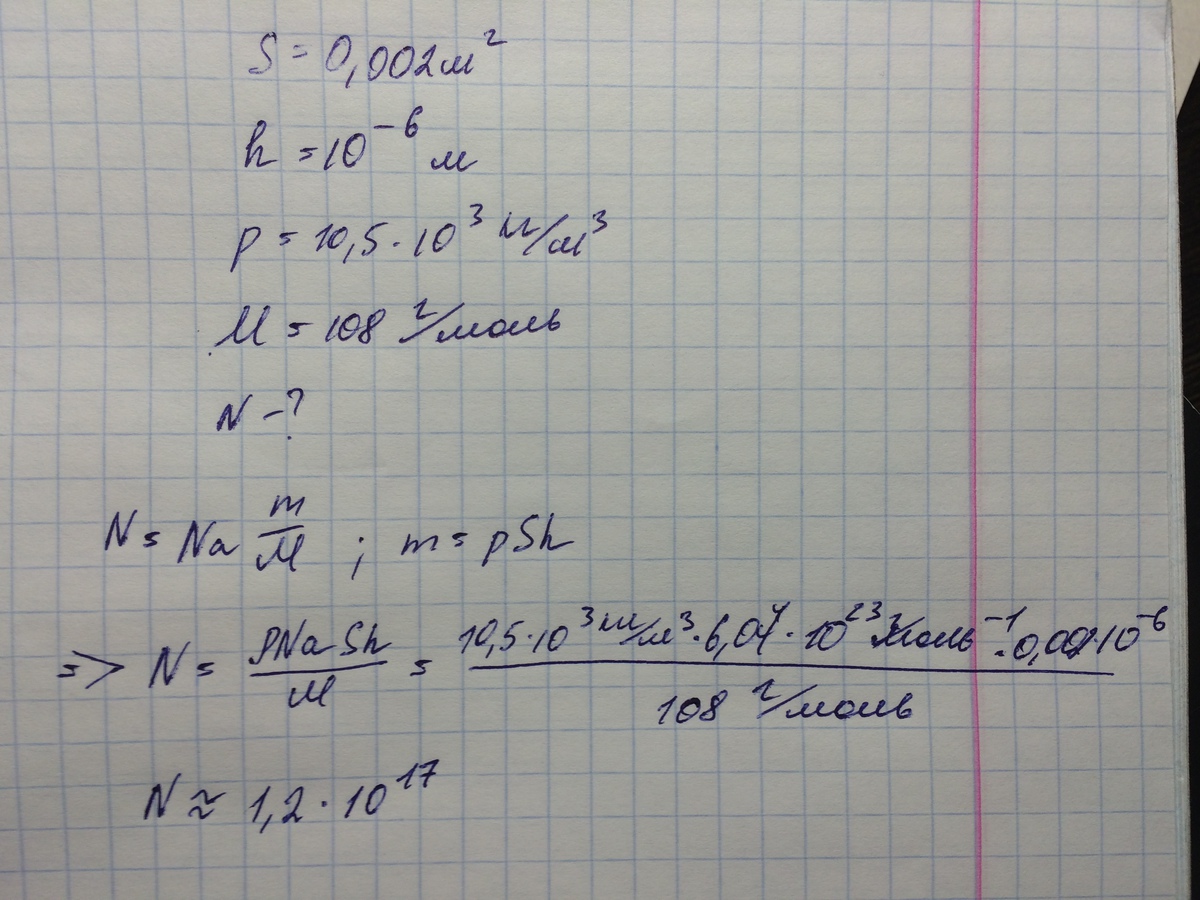 S = 0,002 м²
h = 10⁻⁶ м
p = 10,5 · 10³ кг/м³
M = 108 г/моль
N - ?
N = Na m/M ; m = pSh
=> N = pNaSh/M = 10,5 · 10³ кг/м³ · 6,04 · 10²³ моль⁻¹ · 0,002 · 10⁻⁶ / 108 г/моль
N ≈ 1,2 · 10¹⁷